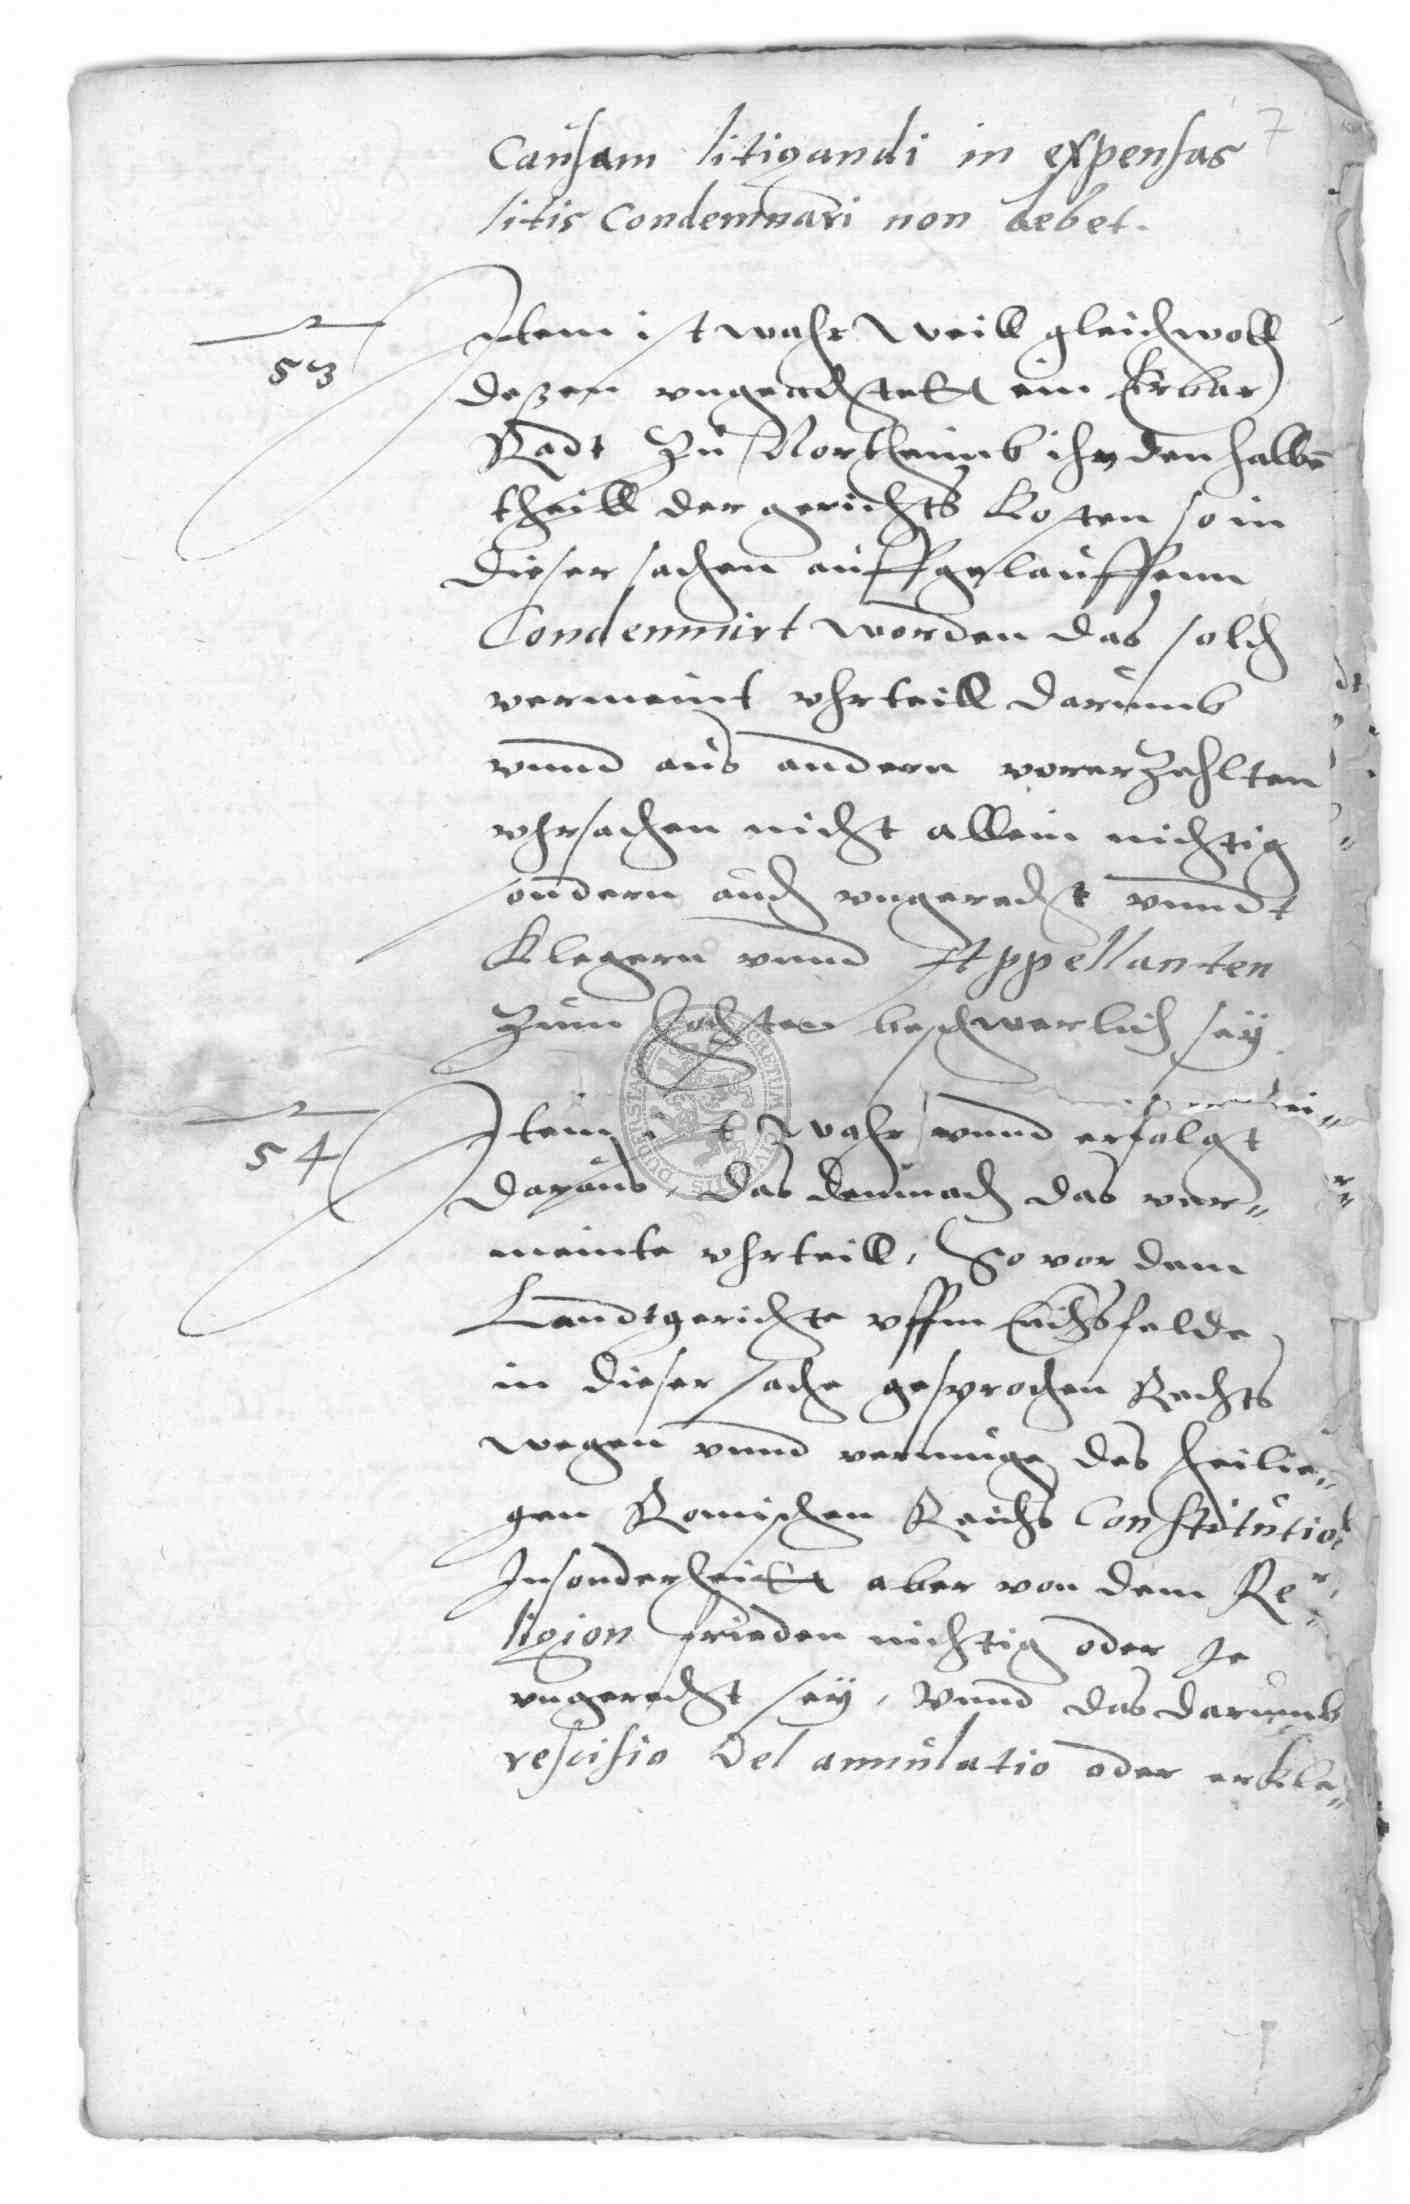 7
Causam litigandi in expensas
litis Condemnari non debet.
53
Item ist wahr Weill gleichwoll
deßen vngeachtett ein Erbar
Radt Zu Northeimb ihn den halbē
theill der gerichts Kosten so in
dieser sachen auffgelauffenn
Condemnirt worden das solch
vermeint vhrteill darumb
vnnd aus andern vorerZehlten
vhrsachen nicht allein nichtig
sondern auch vngerecht vnndt
Klegern vnnd Appellanten
Zum hochsten beschwerlich seÿ
54
Item ist Wahr vnnd erfolgt
daraus, das demnach das ver„
meinte vhrteill, So vor dem
Landtgerichte vffm Eichsfelde
in dieser sache gesprochen Rechts
wegen vnnd vermuge des heilie„
gen Romischen Reichs Constitution
Insonderheitt aber von dem Re„
ligion frieden nichtig oder Je
vngerecht seÿ, Vnnd das darumb
rescisio Vel annulatio oder erkle„